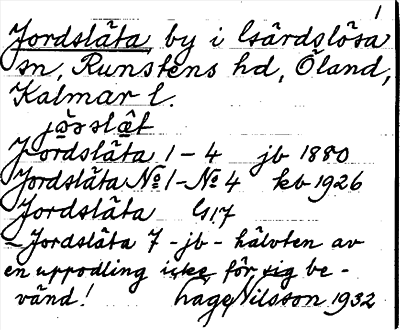 1
Jordsläta by i Gärdslösa
sn, Runstens hd, Öland,
Kalmar l.
Jordsläta 1-4 jb 1880
Jordsläta No 1-No 4 kb 1926
Jordsläta G17
- Jordsläta 7 - jb - hälvten av
en uppodling icke för sig be-
vänd! Lage Nilsson 1932